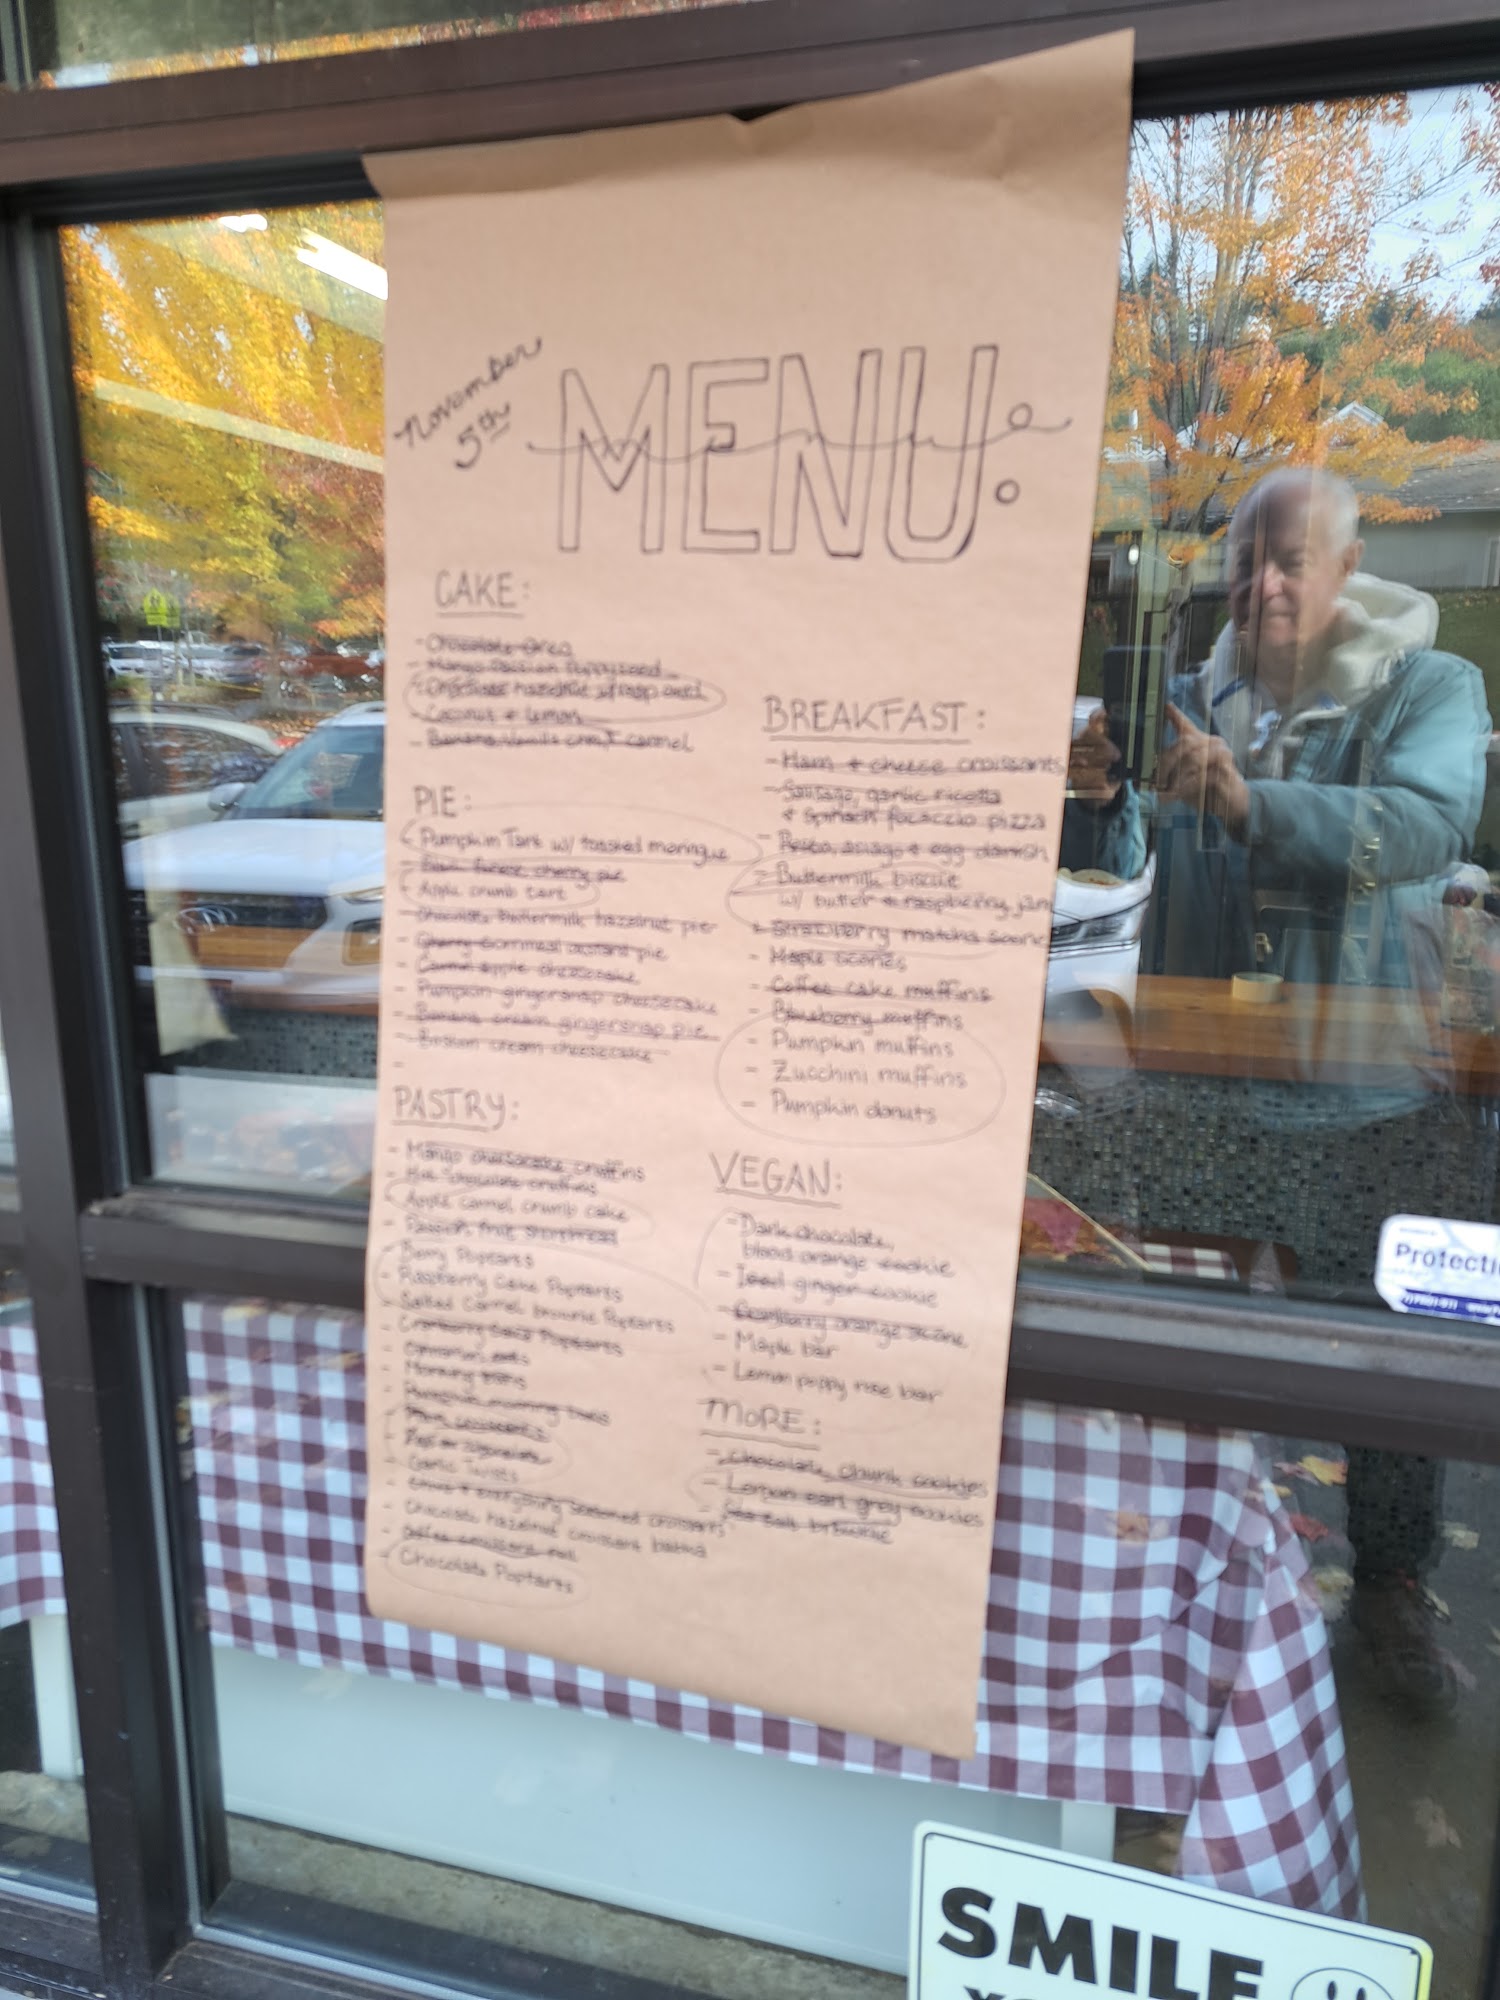 November
5th
MENU:
CAKE:
- Chocolate Oreo
- Mango Passion Poppyseed
- Coconut + lemon
- Banana Vanilla carmel
PIE:
- Pumpkin Tart w/ toasted moringue
cherry pie
- Apple crumb tart
- Chocolate buttermilk hazelnut pier
- Cherry Cornmeal custard pie
- Carmel apple cheesecake
- Pumpkin gingersnap cheesecake
- Banana cream gingersnap pie
- cream cheesecake
-
PASTRY:
- Mango cheesecake cruffins
- Hot chocolate cruffins
- Apple carmel crumb cake
- Passion fruit
- Berry Poptarts
- Raspberry Cake Poptarts
- Salted Carmel brownie Poptarts
- Cranberry Poptarts
- Cinnamon
- Morning buns
- Pumpkin morning buns
- Garlic Twists
+ everything seasoned croissants
- Chocolate hazelnut croissant babka
- Chocolate Poptarts
BREAKFAST:
- Ham + cheese croissants
- Sausage, garlic ricotta
+ spinach focaccia pizza
- Pesto, asiago + egg danish
- Buttermilk biscuit
w/ butter + raspberry jam
- Strawberry matcha scone
- Maple scones
- Coffee cake muffins
- Blueberry muffins
- Pumpkin muffins
- Zucchini muffins
- Pumpkin donuts
VEGAN:
- Dark chocolate,
blood orange cookie
- Iced ginger cookie
- Cranberry orange scone
- Maple bar
- Lemon poppy rose bar
MORE:
- Chocolate chunk cookies
- Lemon earl grey cookies
- Sea Salt brownie
Protecti
SMILE